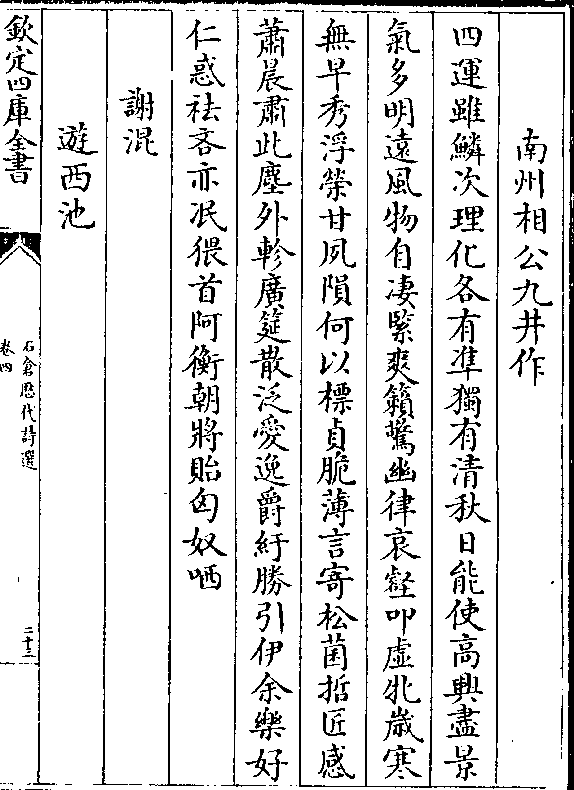 南州相公九井作
四運雖鱗次理化各有準獨有清秋日能使高興盡景
氣多明遠風物自凄緊爽籟驚幽律哀壑叩虛牝歲寒
無早秀浮榮甘夙隕何以標貞脆薄言寄松菌哲匠感
蕭晨肅此塵外軫廣筵散泛愛逸爵紆勝引伊余樂好
仁惑祛吝亦泯猥首阿衡朝將貽匈奴哂
謝混
遊西池
欽定四庫全書
石倉歷代詩選
卷四
二十三